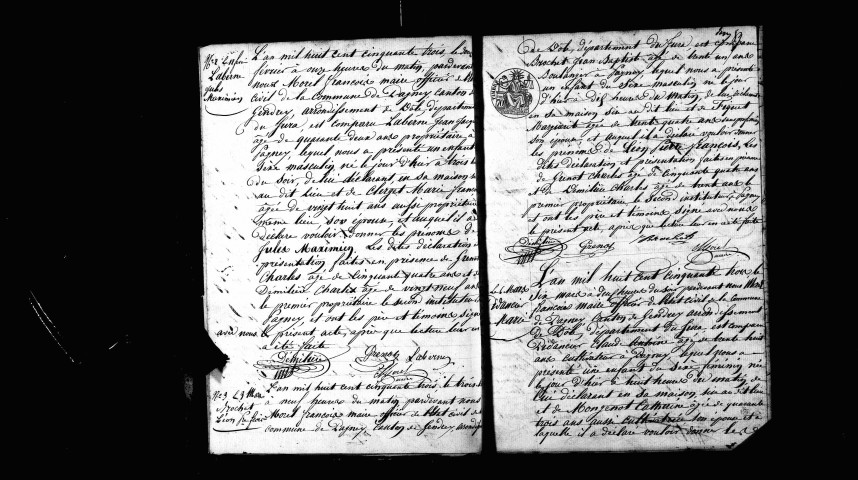 N°2 Enfin
Laberne
Jules
Maximien
L'an mil huit cent cinquante trois, le deux
février à onze heures du matin, pardevant
nous Morel françois maire officier de l'état
civil de la Commune de Pagney canton de
Gendrey, arrondissement de Dôle, département
du Jura, est comparu Laberne Jean
âgé de quarante deux ans propriétaire à
Pagney, lequel nous a présenté un enfant
sexe masculin né le jour d'hier à trois h
du soir, de lui déclarant, en sa maison
au dit lieu et de Clerget Marie Jeanne
âgée de vingt huit ans aussi propriétaire
même lieu son épouse, et auquel il a
déclaré vouloir donner les prénoms de
Jules Maximien Les dites déclaration et
présentation faites en présence de Grenot
Charles âgé de Cinquante quatre ans et de
Démilière Charles âgé de vingt neuf ans
le premier propriétaire le second instituteur
Pagney, et ont les père et témoins signé
avec nous le présent acte, après que lecture leur en
a été faite
Démilière Grenot Laberne
Morel
maire
N°3 L 3 Mars
Brochet
Léon
L'an mil huit cent cinquante trois, le trois
à neuf heures du matin pardevant nous
Morel françois maire officier de l'état civil de
commune de Pagney, canton de Gendrey, arrondiss
de Dôle, département du Jura, est comparu
Brochet Jean Baptiste âgé de trente un ans
Boulanger à Pagney, lequel nous a présenté
un enfant du sexe masculin né le jour
d'hier à dix heures du matin, de lui déclarant
en sa maison sise au dit lieu et de
âgée de trente quatre ans
son épouse, et auquel il a déclaré vouloir donner
les prénoms de Léon françois, Les
dites déclaration et présentation faites en présence
de Grenot Charles âgé de cinquante quatre ans
et de Démilière Charles âgé de trente ans le
premier propriétaire le second instituteur à Pagney
et ont les père et témoins signé avec nous
le présent acte, après que lecture leur en a été faite
Démilière Grenot Brochet
Morel
maire
Mars
Marie
L'an mil huit cent cinquante trois le
six mars à deux heures du soir pardevant nous Morel
françois maire officier de l'état civil de la commune
de Pagney, Canton de Gendrey arrondissement
de Dôle département du Jura, est comparu
Claude Antoine âgé de trente huit
ans cultivateur à Pagney, lequel nous a
présenté une enfant du sexe féminin née
le jour d'hier à huit heures du matin, de
lui déclarant en sa maison sise au dit lieu
et de Mongenot Catherine âgée de quarante
trois ans aussi cultivatrice son épouse et à
laquelle il a déclaré vouloir donner le